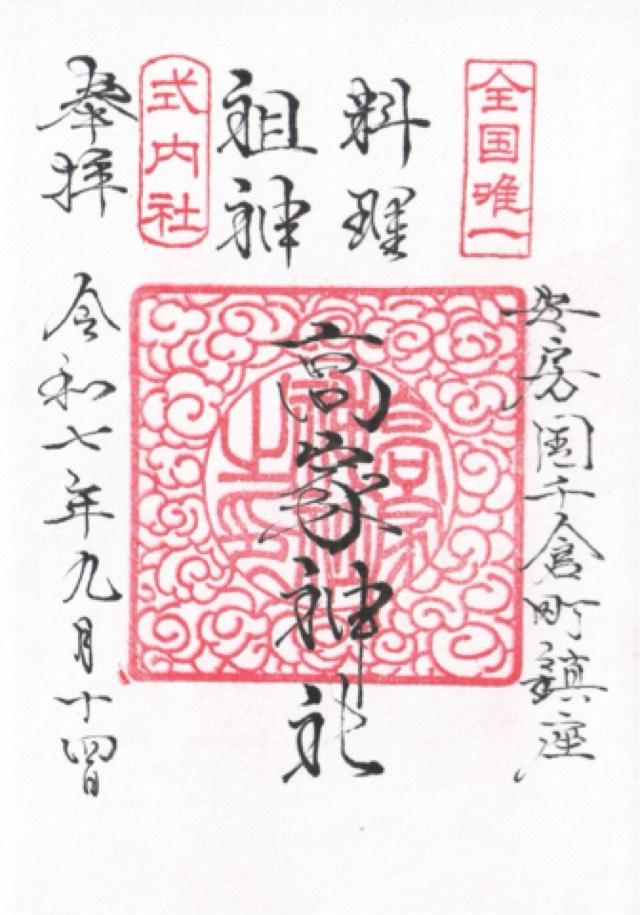 全国唯一
安房国千倉町鎮座
料理
祖神
高家神社
式内社
奉拝
令和七年九月十四日